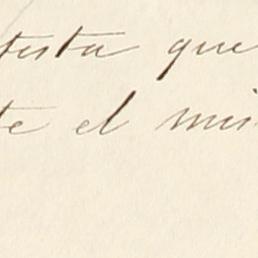 testa que
te el mis